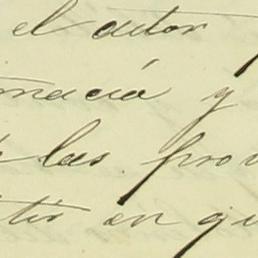 el actor
macia y
las prov
tir en qu